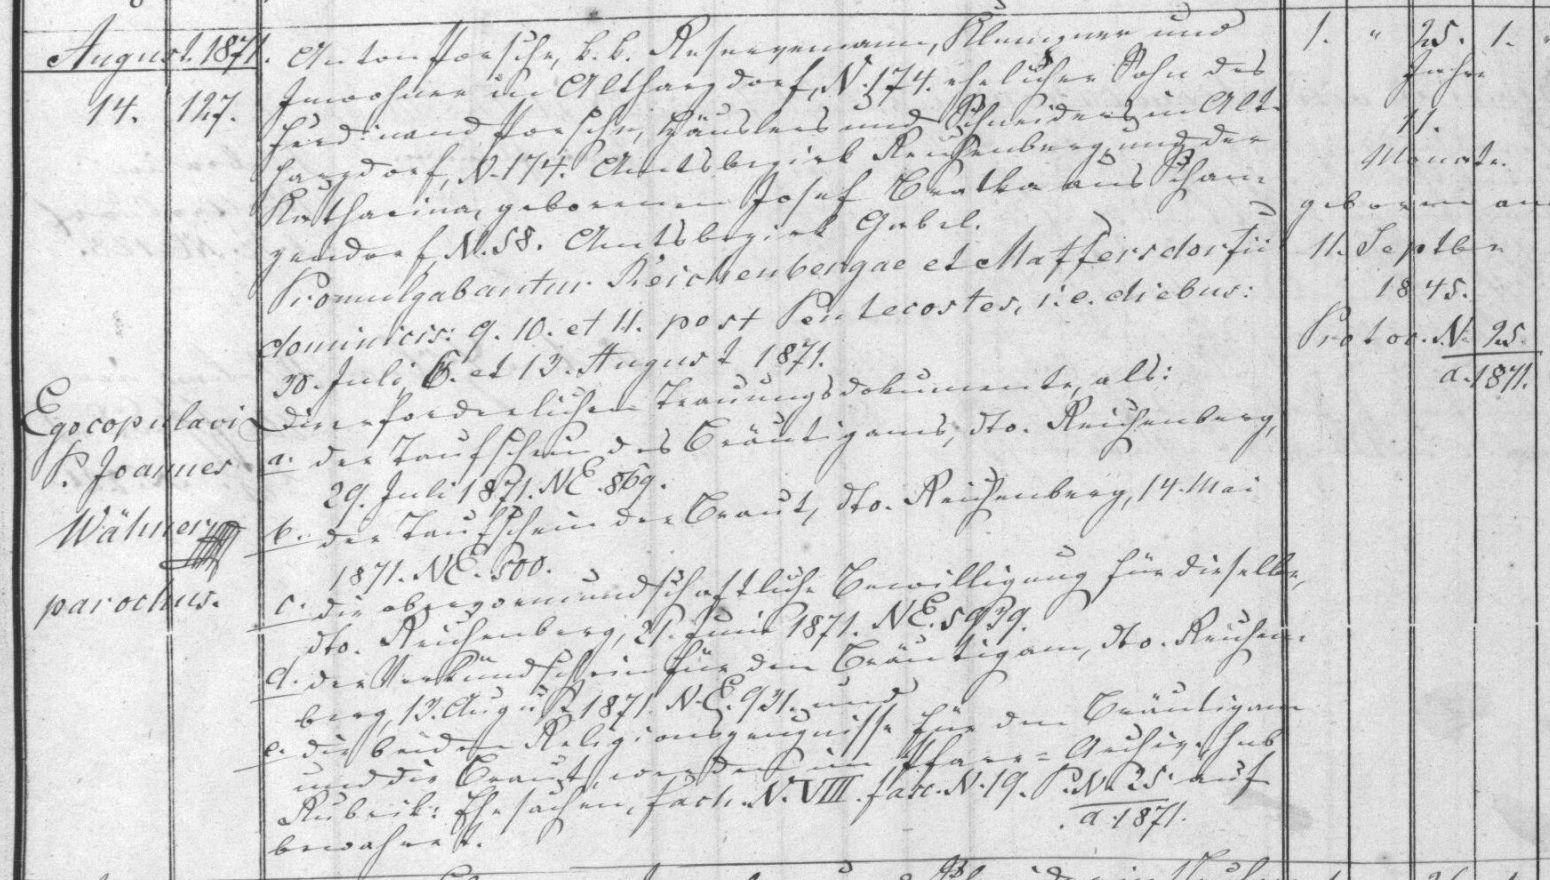 August. 1871.
14. 127.
Egocopulavi
P. Joannes
Wähner
parochus.
Anton Porsche, k. k. Reservemann, Klempner und
Inwohner in Altharzdorf, N. 174. ehelicher Sohn des
Ferdinand Porsche, Häuslers und Schneiders in Alt-
harzdorf, N. 174. Amtsbezirk Reichenberg, und der
Katharina, geborenen Josef Bratka aus
gendorf, N. 58. Amtsbezirk Gabel.
Promulgabantur Reichenbergae et Maffersdorfii
dominicis: 9. 10. et 11. post Pentecostes, i. e. diebus:
30. Juli, 6. et 13. August 1871.
Die erforderlichen Trauungsdokumente, als:
a. der Taufschein des Bräutigams, dto. Reichenberg,
29. Juli 1871. NE. 869.
b. der Taufschein der Braut, dto. Reichenberg, 14. Mai
1871. NE. 500.
c. die obervormundschaftliche Bewilligung für dieselbe,
dto. Reichenberg, 21. Juni 1871. NE. 5939.
d. der Verkündschein für den Bräutigam, dto. Reichen-
berg, 13. August 1871. N. E. 931. und
e. die beiden Religionszeugnisse für den Bräutigam
und die Braut werden im Pfarr-Archive sub
Rubrik: Ehesachen, Fach. N. VIII. fasc. N. 19. P. N. 25. auf
a. 1871.
bewahret.
1. " 25. 1. "
Jahre
11.
Monate.
geboren am
11. Septbr
1845.
Protoc. N. 25.
a. 1871.